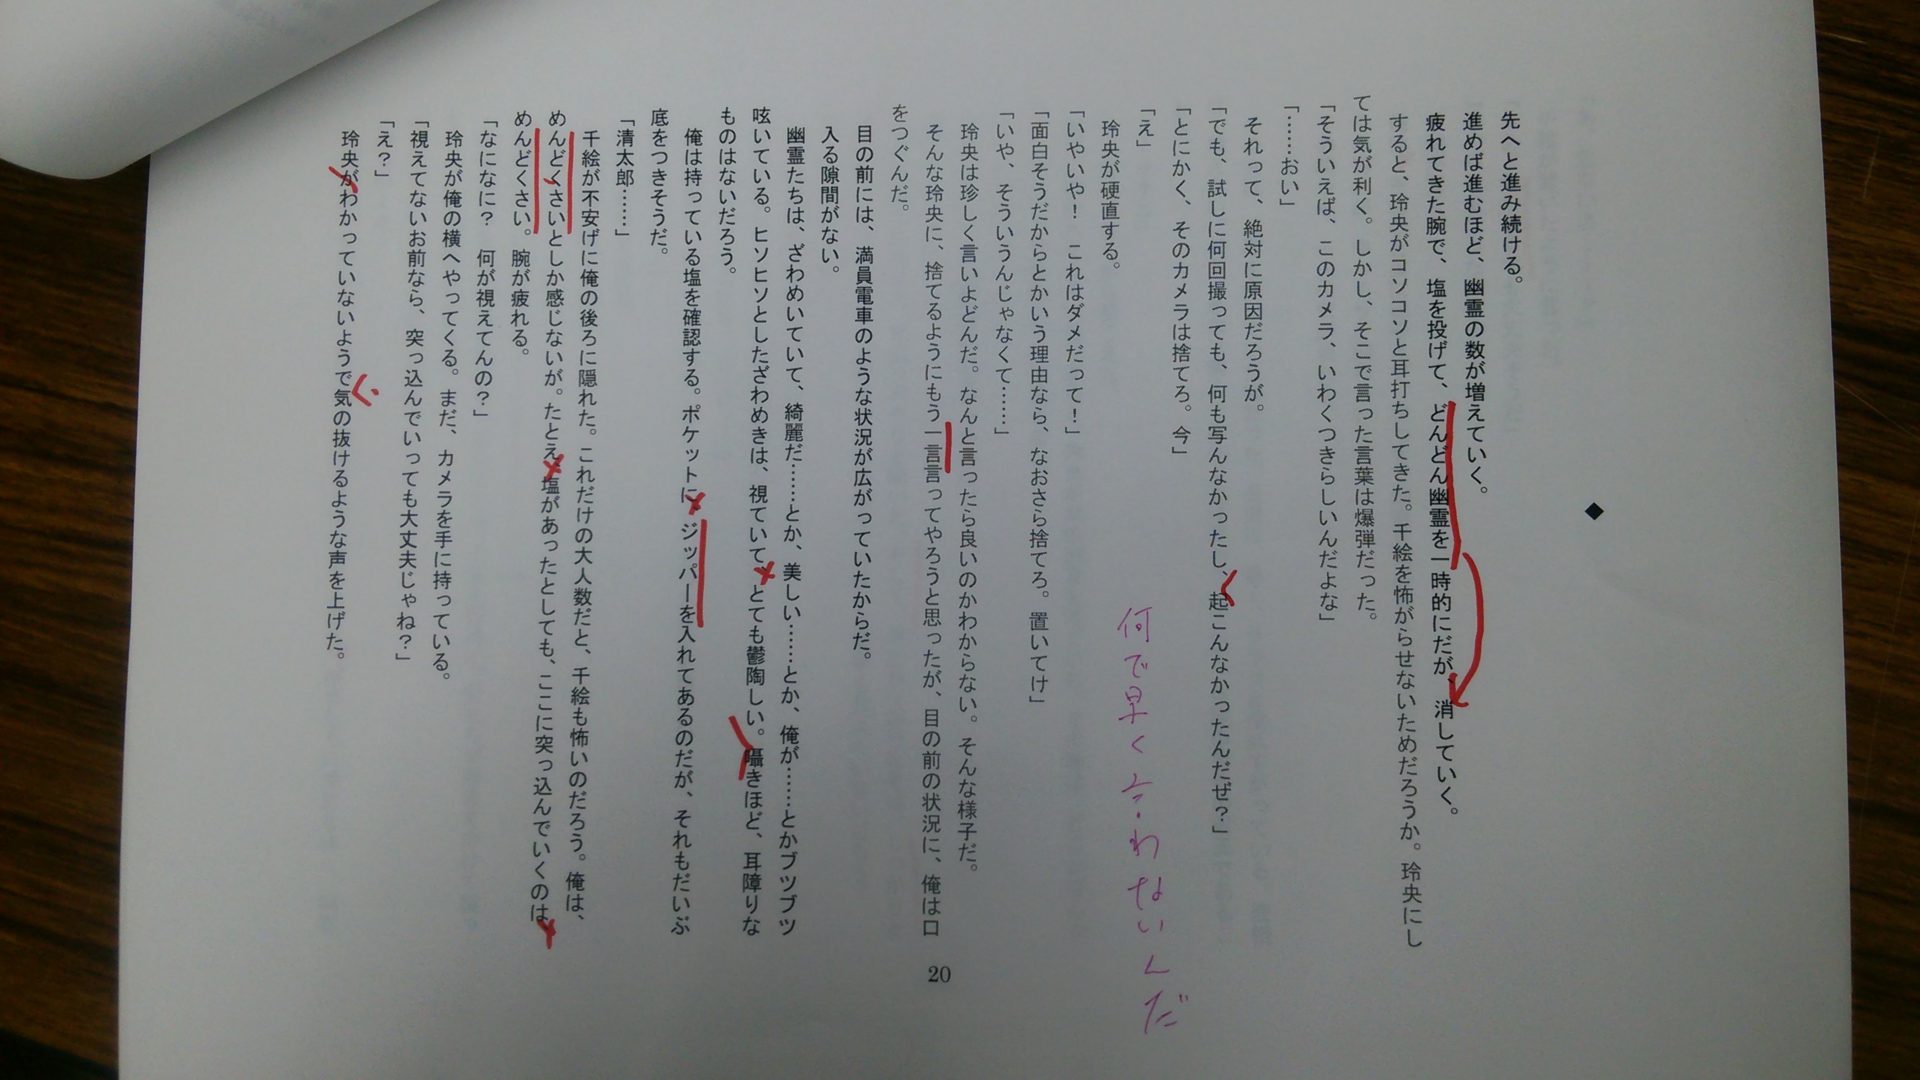 ◆
先へと進み続ける。
進めば進むほど、幽霊の数が増えていく。
疲れてきた腕で、塩を投げて、どんどん幽霊を一時的にだが、消していく。
すると、玲央がコソコソと耳打ちしてきた。千絵を怖がらせないためだろうか。玲央にし
ては気が利く。しかし、そこで言った言葉は爆弾だった。
「そういえば、このカメラ、いわくつきらしいんだよな」
「……おい」
それって、絶対に原因だろうが。
「でも、試しに何回撮っても、何も写んなかったし、起こんなかったんだぜ？」
「とにかく、そのカメラは捨てろ。今」
「え」
何で早く言わないんだ
玲央が硬直する。
「いやいや！　これはダメだって！」
「面白そうだからとかいう理由なら、なおさら捨てろ。置いてけ」
「いや、そういうんじゃなくて……」
玲央は珍しく言いよどんだ。なんと言ったら良いのかわからない。そんな様子だ。
そんな玲央に、捨てるようにもう一言言ってやろうと思ったが、目の前の状況に、俺は口
をつぐんだ。
目の前には、満員電車のような状況が広がっていたからだ。
入る隙間がない。
幽霊たちは、ざわめいていて、綺麗だ……とか、美しい……とか、俺が……とかブツブツ
呟いている。ヒソヒソとしたざわめきは、視ていて、とても鬱陶しい。囁きほど、耳障りな
ものはないだろう。
俺は持っている塩を確認する。ポケットに、ジッパーを入れてあるのだが、それもだいぶ
底をつきそうだ。
「清太郎……」
千絵が不安げに俺の後ろに隠れた。これだけの大人数だと、千絵も怖いのだろう。俺は、
めんどくさいとしか感じないが。たとえ、塩があったとしても、ここに突っ込んでいくのは、
めんどくさい。腕が疲れる。
「なになに？　何が視えてんの？」
玲央が俺の横へやってくる。まだ、カメラを手に持っている。
「視えてないお前なら、突っ込んでいっても大丈夫じゃね？」
「え？」
玲央がわかっていないようで気の抜けるような声を上げた。
20